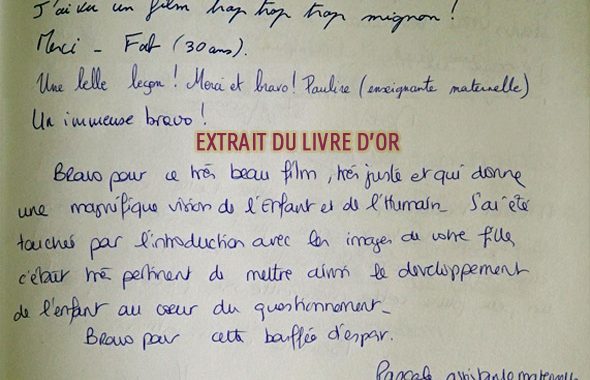 J'ai vu un film trop trop trop mignon !
Merci - Fat (30 ans).
Une belle leçon ! Merci et bravo ! Pauline (enseignante maternelle)
Un immense bravo !
EXTRAIT DU LIVRE D'OR
Bravo pour ce très beau film, très juste et qui donne
une magnifique vision de l'Enfant et de l'Humain_ J'ai été
touchée par l'introduction avec les images de votre fille
c'était très pertinent de mettre ainsi le developpement
de l'enfant au cœur du questionnement_
Bravo pour cette bouffée d'espoir.
Pascale assistante maternelle